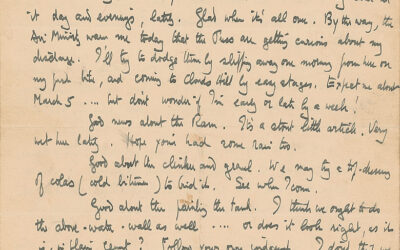 it day and evenings, lately. Glad when it's all one. By the way, the
Air Ministry warn me today that the Press are getting curious about my
discharge. I'll try to dodge them by slipping away one morning from here on
my push bike, and coming to Clouds Hill by easy stages. Expect me about
March 5 .... but don't wonder if I'm early or late by a week!
Good news about the Ram. It's a stout little article. Very
wet here lately. Hope you've had some rain too.
Good about the clinker and gravel. We may try a top-dressing
of colas (cold bitumen) to bind it. See when I come.
Good about the painting the tank. I think we ought to do
the above-water-wall as well ..... or does it look right, as it
is, in plain cement? Follow your own judgement. I don't